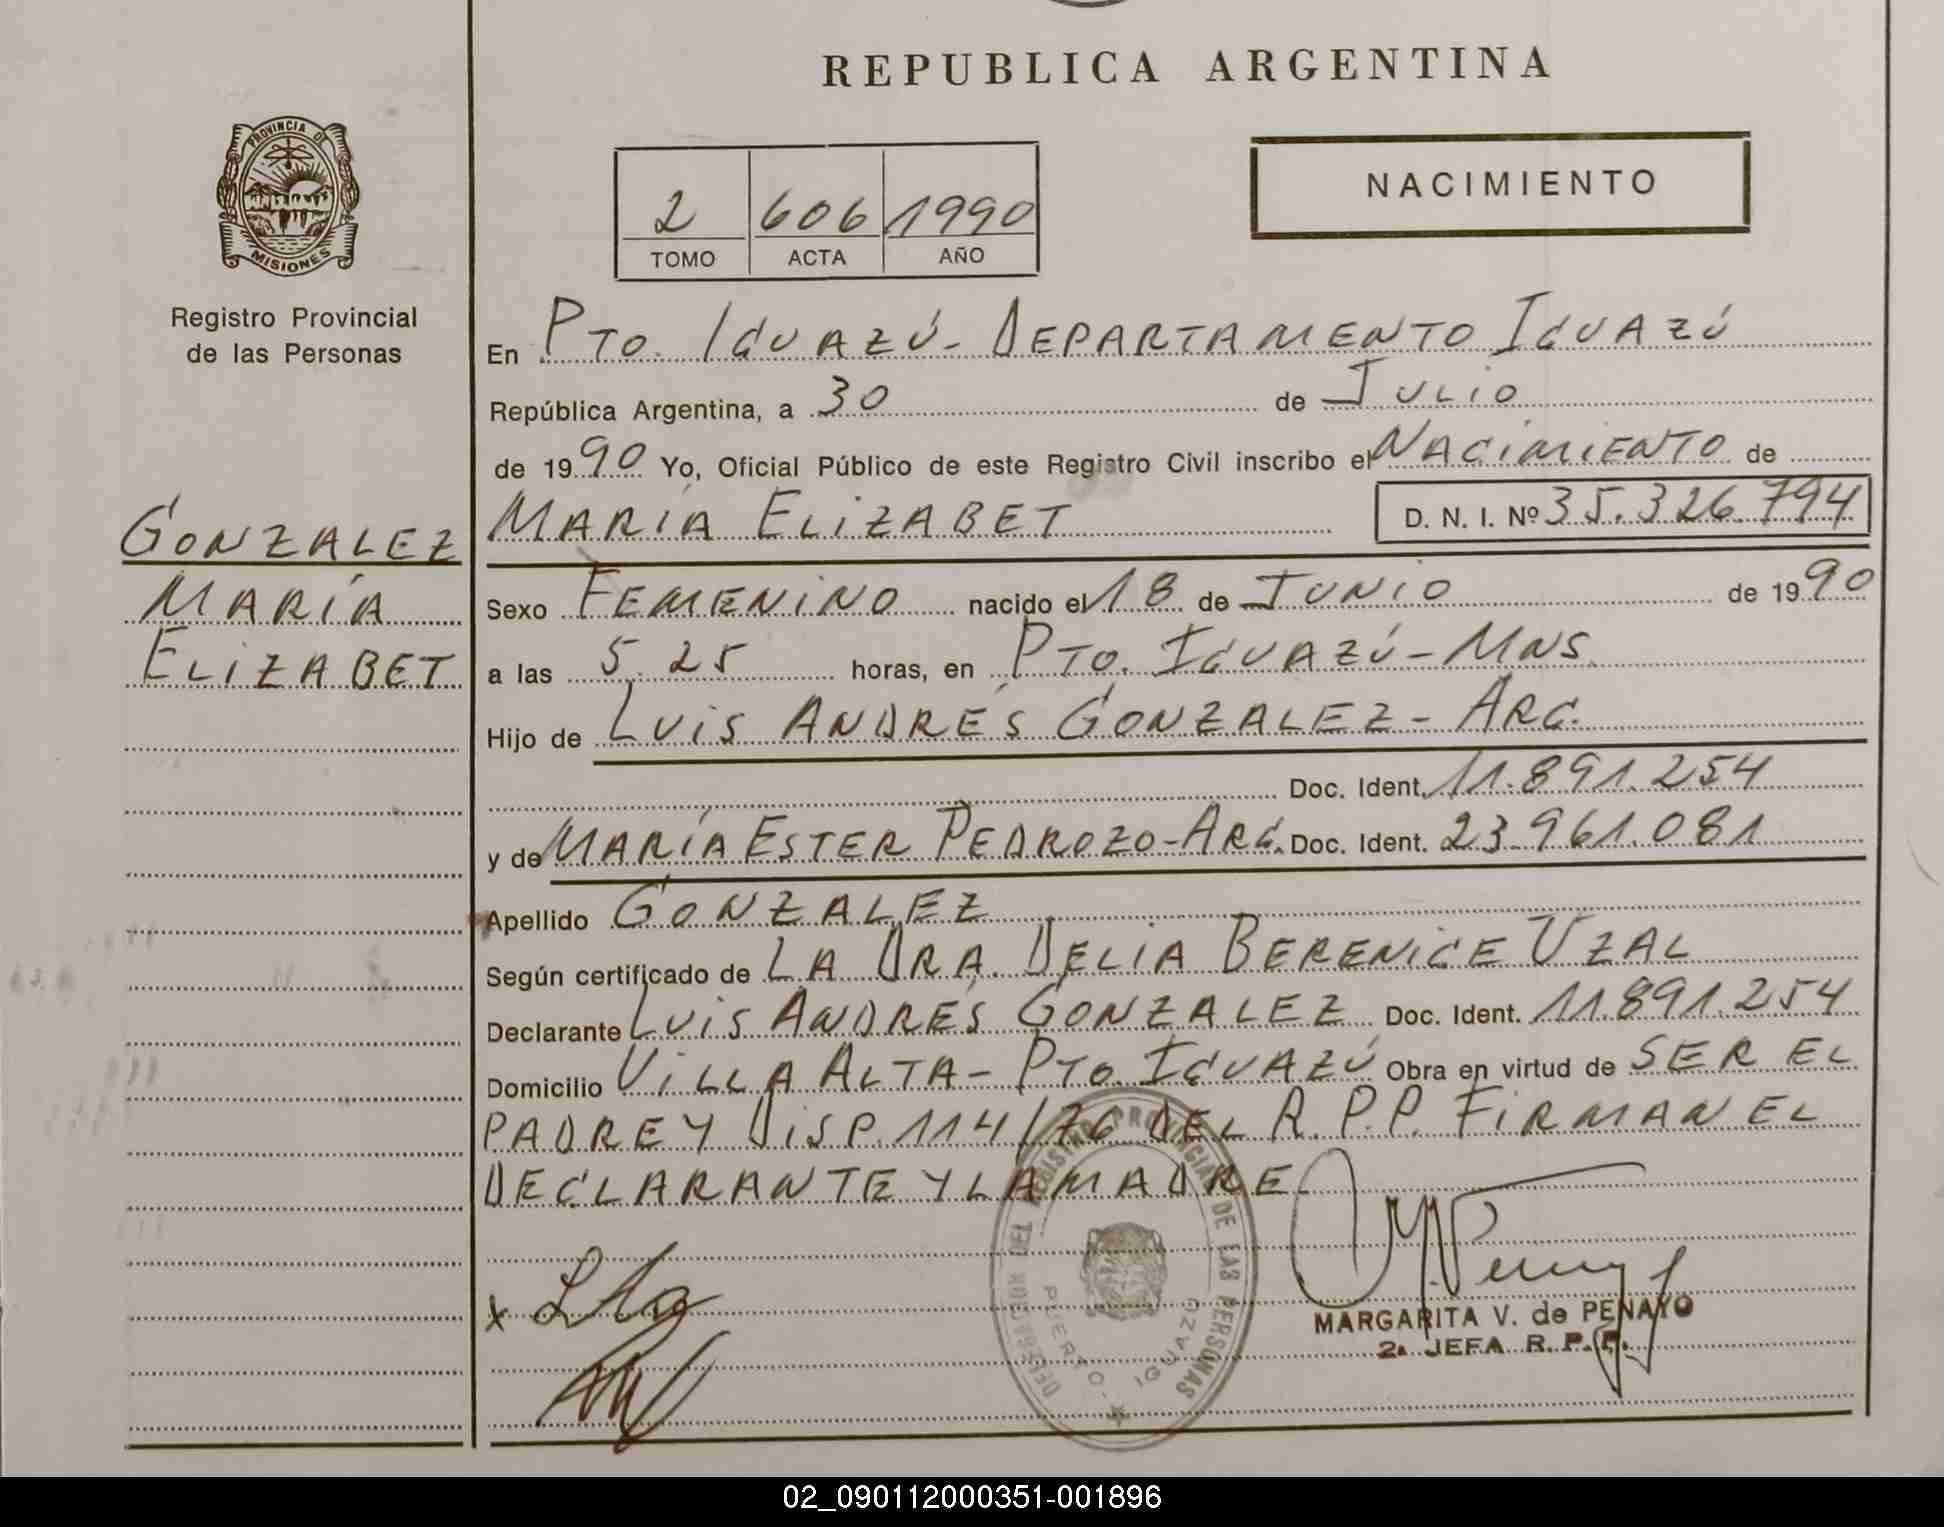 REPUBLICA ARGENTINA
PROVINCIA DE
MISIONES
Registro Provincial
de las Personas
2 606 1990
TOMO ACTA AÑO
NACIMIENTO
En PTO. IGUAZÚ - DEPARTAMENTO IGUAZÚ
República Argentina, a 30 de JULIO
de 1990 Yo, Oficial Público de este Registro Civil inscribo el NACIMIENTO de
MARÍA ELIZABET D. N. I. Nº 35.326.794
GONZALEZ
MARÍA
ELIZABET
Sexo FEMENINO nacido el 18 de JUNIO de 1990
a las 5.25 horas, en PTO. IGUAZÚ - MNS.
Hijo de LUIS ANDRÉS GONZALEZ - ARG.
Doc. Ident. 11.891.254
y de MARÍA ESTER PEDROZO - ARG. Doc. Ident. 23.961.081
Apellido GONZALEZ
Según certificado de LA DRA. DELIA BERENICE UZAL
Declarante LUIS ANDRÉS GONZALEZ Doc. Ident. 11.891.254
Domicilio VILLA ALTA - PTO. IGUAZÚ Obra en virtud de SER EL
PADRE Y DISP. 114/76 DEL R.P.P. FIRMAN EL
DECLARANTE Y LA MADRE
DEL REGISTRO PROVINCIAL DE LAS PERSONAS
PUERTO IGUAZU
MARGARITA V. de PENAYO
2a JEFA R. P. P.
02_090112000351-001896